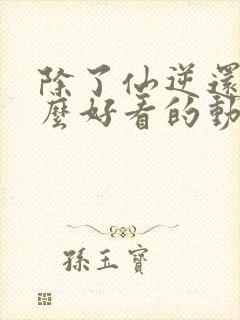 除了仙逆還
麼好看的動
孫玉寶